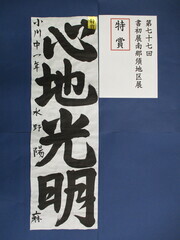 第七十七回
書初展南那須地区展
特賞
心地光明
小川中一年 水野陽麻